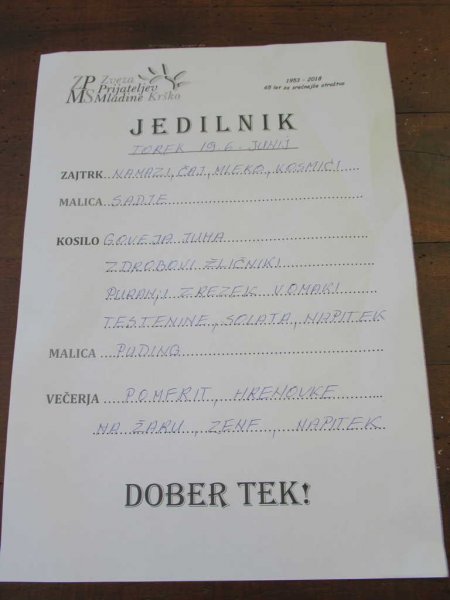 ZPMS Zveza Prijateljev Mladine Krško
1953 - 2018
65 let za srečnejše otroštvo
JEDILNIK
TOREK 19.6. JUNIJ
ZAJTRK NAMAZI, ČAJ, MLEKO, KOSMIČI
MALICA SADJE
KOSILO GOVEJA JUHA
ZDROBOVI ŽLIČNIKI
PURANJI ZREZEK V OMAKI
TESTENINE, SOLATA, NAPITEK
MALICA PUDING
VEČERJA POMFRIT, HRENOVKE
NA ŽARU, ZENF, NAPITEK
DOBER TEK!